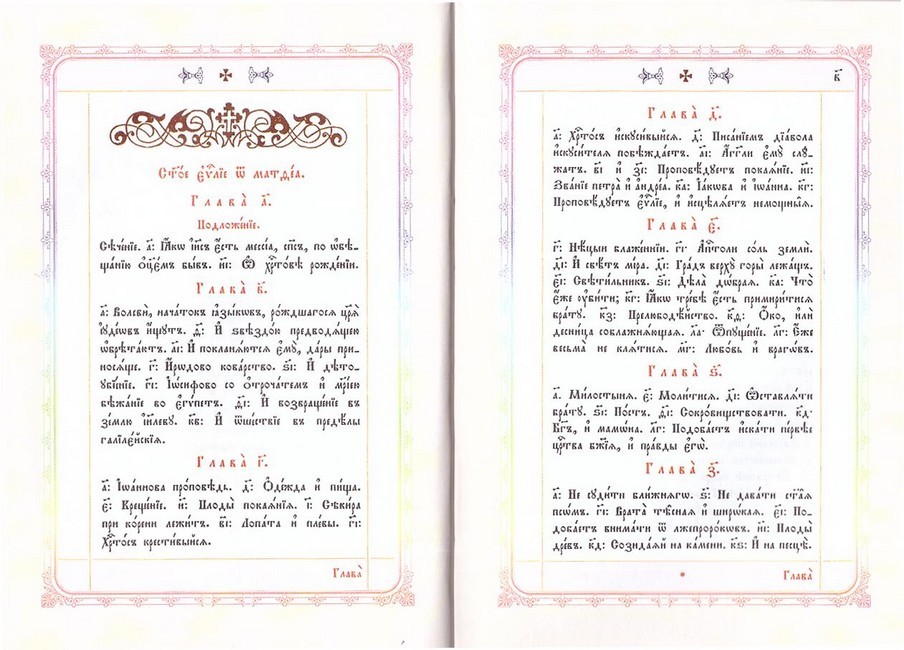 Ст҃о́е є҆ѵⷢ҇лїе ѿ матѳеа.
Глава̀ а҃.
Подложе́нїе.
Сѣче́нїе. а҃: Ꙗ҆́кѡ і҆и҃съ є҆́сть мессі́а, сп҃съ, по ѡ҆бѣ-
ща́нїю ѻ҆тцє́мъ бы́въ. и҃і: Ѽ хрⷭ҇то́вѣ рожде́нїи.
Глава̀ в҃.
а҃: Волсвѝ, нача́токъ ꙗ҆зы́кѡвъ, ро́ждшагосѧ цр҃ѧ̀
і҆ꙋде́ѡвъ и҆́щꙋтъ. д҃: И҆ ѕвѣздо́ю предводѧ́щею
ѡ҆брѣта́ютъ. а҃і: И҆ покланѧ́ютсѧ є҆мꙋ̀, да́ры при-
носѧ́ще. г҃і: И҆́рѡдово кова́рство. ѕ҃і: И҆ дѣто-
ᲂу҆бїе́нїе. г҃і: І҆ѡ́сифово со ѻ҆троча́темъ и҆ мр҃і́ею
бѣжа́нїе во є҆гѵ́петъ. д҃і: И҆ возвраще́нїе въ
зе́млю і҆и҃леву. к҃в: И҆ ѿше́ствїе въ предѣ́лы
галїле́йскїѧ.
Глава̀ г҃.
а҃: І҆ѡа́ннова про́повѣдь. д҃: Ѻ҆де́жда и҆ пи́ща.
є҃: Креще́нїе. и҃: Плоды̀ покаѧ́нїѧ. і҃: Сѣки́ра
при ко́рени лежи́тъ. в҃і: Лопа́та и҆ пле́вы. г҃і:
Хрⷭ҇то́съ крести́выйсѧ.
Глава̀
в҃
Глава̀ д҃.
а҃: Хрⷭ҇то́съ и҆скꙋси́выйсѧ. д҃: Писа́нїемъ дїа́вола
и҆скꙋси́телѧ побѣжда́етъ. а҃і: А҆́гг҃ли є҆мꙋ̀ слꙋ́-
жатъ. в҃і и҆ з҃і: Проповѣ́дꙋетъ покаѧ́нїе. и҃і:
Зва́нїе петра̀ и҆ а҆ндре́а. к҃а: І҆а́кѡва и҆ і҆ѡа́нна. к҃г:
Проповѣ́дꙋетъ є҆ѵⷢ҇лїе, и҆ и҆сцѣлѧ́етъ немощны́ѧ.
Глава̀ є҃.
г҃: Нѣ́цыи блаже́ннїи. г҃і: А҆пⷭ҇толи со́ль землѝ.
д҃і: И҆ свѣ́тъ мі́ра. д҃і: Гра́дъ верхꙋ̀ горы̀ лежа́щъ.
є҃і: Свѣти́льникъ. ѕ҃і: Дѣла̀ дѡ́браѧ. к҃а: Что̀
є҆́же ᲂу҆би́ти; к҃г: Ꙗ҆́кѡ тре́бѣ є҆́сть примири́тисѧ
бра́тꙋ. к҃з: Прелюбодѣ́йство. к҃ѳ: Ѻ҆́ко, и҆лѝ
десни́ца соблажнѧ́ющаѧ. л҃а: Ѿпꙋще́нїе. л҃г: Є҆́же
весьма̀ не клѧ́тисѧ. м҃г: Любо́вь и҆ врагѡ́въ.
Глава̀ ѕ҃.
а҃. Ми́лостынѧ. є҃: Моли́тисѧ. д҃і: Ѡ҆ставлѧ́ти
бра́тꙋ. ѕ҃і: По́стъ. ѳ҃і: Сокро́вищствовати. к҃д:
Бг҃ъ, и҆ мамѡ́на. л҃г: Подоба́етъ и҆ска́ти пе́рвѣе
црⷭ҇тва бж҃їѧ, и҆ пра́вды є҆гѡ̀.
Глава̀ з҃.
а҃: Не сꙋди́ти бли́жнѧго. ѕ҃: Не дава́ти ст҃а̑ѧ
псѡ́мъ. г҃і: Врата̀ тѣ̑снаѧ и҆ широ́каѧ. є҃і: По-
доба́етъ внима́ти ѿ лжепроро́кѡвъ. и҃і: Плоды̀
дре́въ. к҃д: Созида́ѧй на ка́мени. к҃ѕ: И҆ на песцѣ̀.
Глава̀